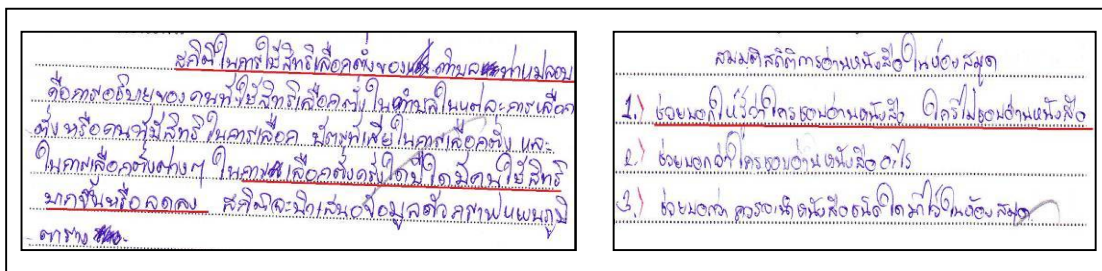 สถิติในการใช้สิทธิเลือกตั้งของ ตำบล ท่าแมลบ
คือการอธิบายของคนที่ใช้สิทธิเลือกตั้ง ในตำบลในแต่ละการเลือก
ตั้ง หรือคนที่มีสิทธิในการเลือก บัตรที่เสียในการเลือกตั้ง และ
ในการเลือกตั้งต่างๆ ในการเลือกตั้งครั้งใดปีใดมีคนใช้สิทธิ
มากขึ้นหรือลดลง สถิติจะนำเสนอข้อมูลด้วยกราฟแผนภูมิ
ตาราง
สมมติสถิติการอ่านหนังสือในห้องสมุด
1.) ช่วยบอกให้รู้ว่าใครชอบอ่านหนังสือ ใครไม่ชอบอ่านหนังสือ
2.) ช่วยบอกว่าใครชอบอ่านหนังสืออะไร
3.) ช่วยบอกว่า ควรจะนำหนังสือชนิดใดมาไว้ในห้องสมุด